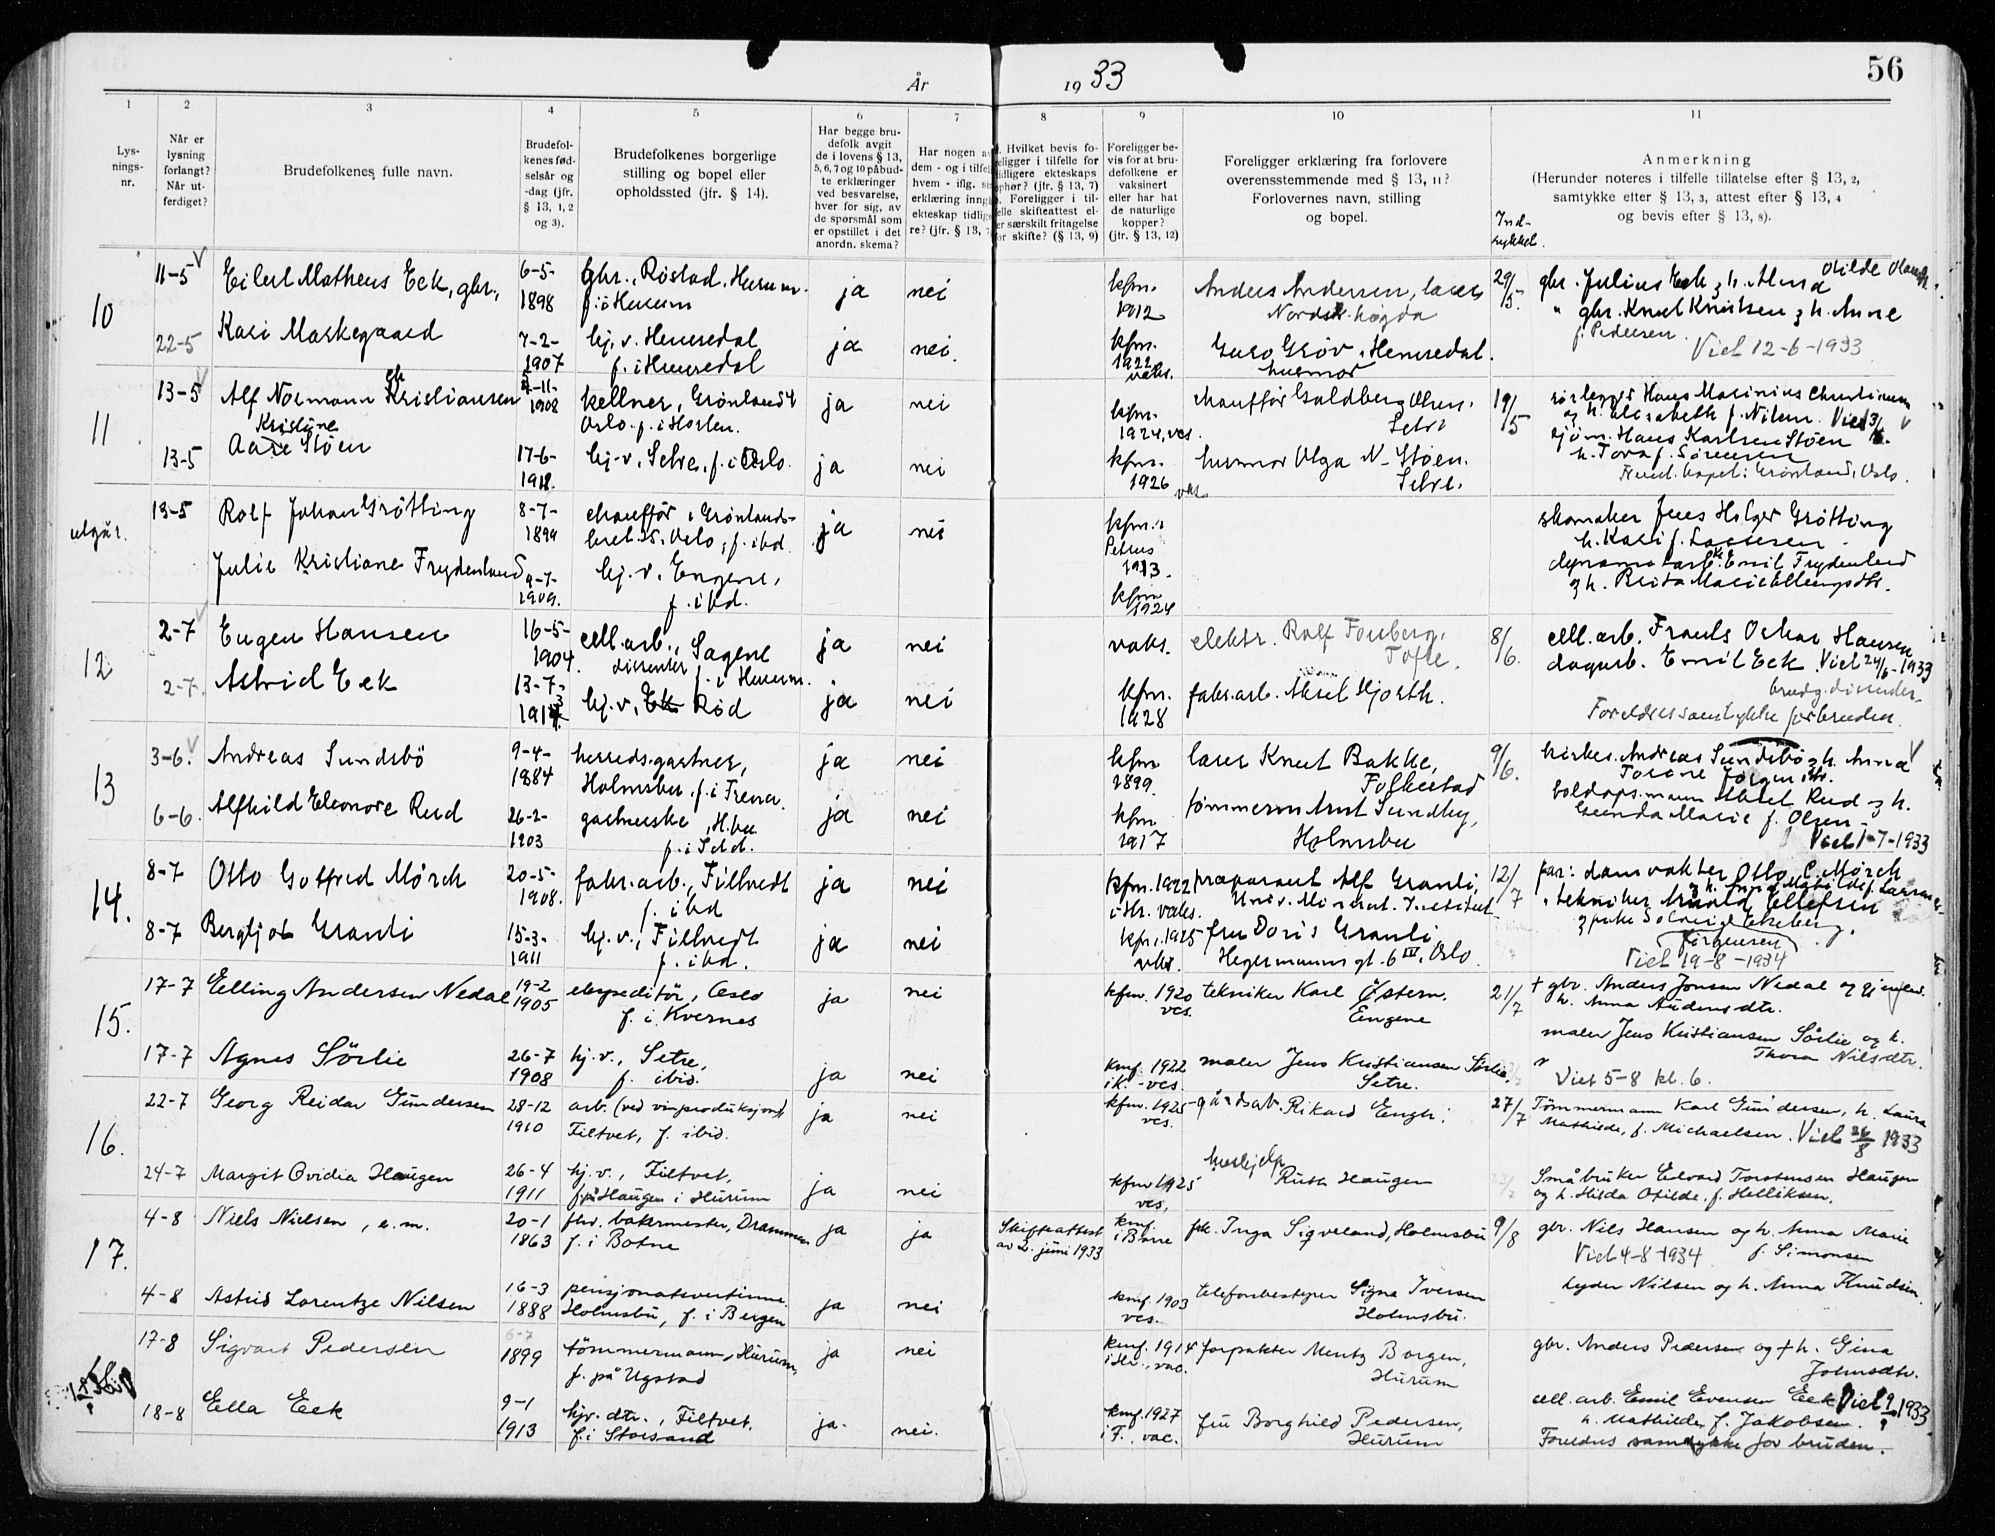 56
År 1933
1 2 3 4 5 6 7 8 9 10 11
Lys-
nings-
nr.
Når er
lysning
forlangt?
Når ut-
ferdiget?
Brudefolkenes fulle navn.
Brudefol-
kenes fød-
selsår og
-dag (jfr.
§ 13, 1, 2
og 3).
Brudefolkenes borgerlige
stilling og bopel eller
opholdssted (jfr. § 14).
Har begge bru-
defolk avgit
de i lovens § 13,
5, 6, 7 og 10 påbud-
te erklæringer
ved besvarelse,
hver for sig, av
de spørsmål som
er opstillet i det
anordn. skema?
Har nogen av
dem - og i tilfelle
hvem - iflg.
erklæring inngå
ekteskap tidlige
re? (jfr. § 13,
Hvilket bevis fo-
religger i tilfelle for
tidligere ekteskaps
ophør? (jfr. § 13, 7)
Foreligger i til-
felle skifteattest el-
er særskilt fritagelse
for skifte? (§ 13, 9)
Foreligger be-
vis for at bru-
defolkene er
vaksinert
eller har hat
de naturlige
kopper?
(jfr. § 13, 12)
Foreligger erklæring fra forlovere
overensstemmende med § 13, 11?
Forlovernes navn, stilling
og bopel.
Anmerkning
(Herunder noteres i tilfelle tillatelse efter § 13, 2,
samtykke efter § 13, 3, attest efter § 13, 4
og bevis efter § 13, 8).
10 11-5 Eilert Matheus Eek, gbr., 6-5-1898 gbr., Røstad, Hurum f. i Hurum ja nei kfm. 1912 Anders Andersen, lærer Nordre høgda 29/5 gbr. Julius Eek og h. Anna
22-5 Kari Markegaard 7-2-1907 hj. v. Hemsedal f. i Hemsedal ja nei. kfm. 1922 vaks. Guro Grøv, Hemsedal. husmor " gbr. Knut Knutsen og h. Anne f. Pedersen. Viet 12-6-1933
11 13-5 Alf Normann Kristiansen 11-1908 kellner, Grønland 4 Oslo. f. i Horten. ja nei kfm. 1924, ves. chauffør Goldberg Olsen, Setre 19/5 rørlegger Hans Marinius Christiansen og h. Elisabeth f. Nilsen.
13-5 Kristine Aase Støen 17-6-1912. hj. v., Setre, f. i Oslo. ja nei kfm. 1926 vaks. husmor Olga N. Støen. Setre. sjøm. Hans Karlsen Støen h. Tora f. Sørensen
Grønland, Oslo.
utgår. 13-5 Rolf Johan Grøtting 8-7-1899 chauffør, Grønlands- Oslo, f. ibd. ja nei kfm. i Petrus 1913. skomaker Jens Holger Grøtting h. Kari f. Larsen
Julie Kristiane Frydenlund 9-7-1909. hj. v. Engene, f. ibd. kfm 1924 dynamitarb. Emil Frydenlund og h. Berta Marie Ellingsdtr.
12 2-7 Eugen Hansen 16-5-1904. cell. arb., Sagene dissenter f. i Hurum. ja nei vaks. elektr. Rolf Forberg, Tofte. 8/6. cell. arb. Frants Oskar Hansen
2-7. Astrid Eek 13-7-191 hj. v., Rød ja nei kfm. 1928 fabr. arb. Aksel Hjorth. dagarb. Emil Eek. Viet 24/6-1933
brudg. dissenter.
Foreldres samtykke for bruden.
13 3-6. Andreas Sundsbö 9-4-1884 herredsgartner, Holmsbu. f. i Fræna. ja nei kfm 1899. lærer Knut Bakke, Folkestad 9/6. kirkes. Andreas Sundsbö og h. Anna
6-6. Alfhild Eleonore Rud 26-2-1903 gartnerske, H.bu f. i Sdd. ja nei kfm 1917 tømmerm. Arnt Sundby, Holmsbu Rud og h. Gunda Marie f. Olsen.
Viet 1-7-1933
14. 8-7 Otto Gotfred Mörch 20-5-1908. fabr. arb., Filtvedt f. ibd ja nei kfm. 1922 i Hr. vaks. præparant Alf Granli, Univ. Mineral. Institut 12/7 far: damvokter Otto C. Mörch
8-7 Bergljot Granli 15-3-1911 hj. v., Filtvedt f. ibd. ja nei kfm. 1925 vaks. fru Doris Granli Hegermanns gt. 6 IV, Oslo " tekniker Arnold Ellefsen
Jörgensen
Viet 19-8-1934
15. 17-7 Elling Andersen Nedal 19-2 1905 ekspeditör, Oslo f. i Kvernes ja nei kfm. 1920 ves. tekniker Karl Østern. Engene 21/7 + gbr. Anders Jonsen Nedal og gjenlev. h. Anna Andersdtr.
17-7 Agnes Sörlie 26-7 1908 hj. v., Setre, f. ibid. ja nei kmf. 1922 ik. - ves. maler Jens Kristiansen Sörlie. Setre. maler Jens Kristiansen Sörlie og h. Thora Nilsdtr.
Viet 5-8 kl. 6.
16. 22-7 Georg Reidar Gundersen 28-12 1910 arb. (ved vinproduksjon) Filtvet, f. ibid. ja nei kfm. 1925 ves. gårdsarb. Rikard Engh. 27/7 Tömmermann Karl Gundersen, h. Laura Mathilde, f. Michaelsen. Viet 26/8 1933
24-7 Margit Ovidia Haugen 26-4 1911 hj. v., Filtvet, f. på Haugen i Hurum ja nei kfm 1925 ves, hushjelp Ruth Haugen Småbruker Edvard Torstensen Haugen og h. Hilda Otilde, f. Helliksen.
17. 4-8 Niels Nielsen, e. m. 20-1 1863 fhv. bakermester, Drammen f. i Botne ja ja Skifteattest av 2. juni 1933 kmf. i Borre frk. Inga Sigveland, Holmsbu 9/8 gbr. Nils Hansen og h. Anna Marie f. Simonsen
Viet 4-8-1934
4-8 Astrid Lorentze Nilsen 16-3 1888 pensjonatvertinne, Holmsbu, f. i Bergen ja nei kmf. 1903 ves. telefonbestyrer Signe Iversen Holmsbu. Lyder Nilsen og h. Anna Knudsen.
17-8 Sigvart Pedersen 6-7 1899 tömmermann, Hurum, f. på Ugstad ja nei kmf. 1914 i Hr., vac. forpakter Mentz Borgen, Hurum gbr. Anders Pedersen og + h. Gina Johnsdtr.
18-8 Ella Eek 9-1 1913 hjv. dtr., Filtvet, f. i Storsand ja. nei. kmf. 1927 i F., vac. fru Borghild Pedersen, Hurum cell. arb. Emil Evensen Eek h. Mathilde, f. Jakobsen.
Viet 9 1933
Foreldres samtykke for bruden.